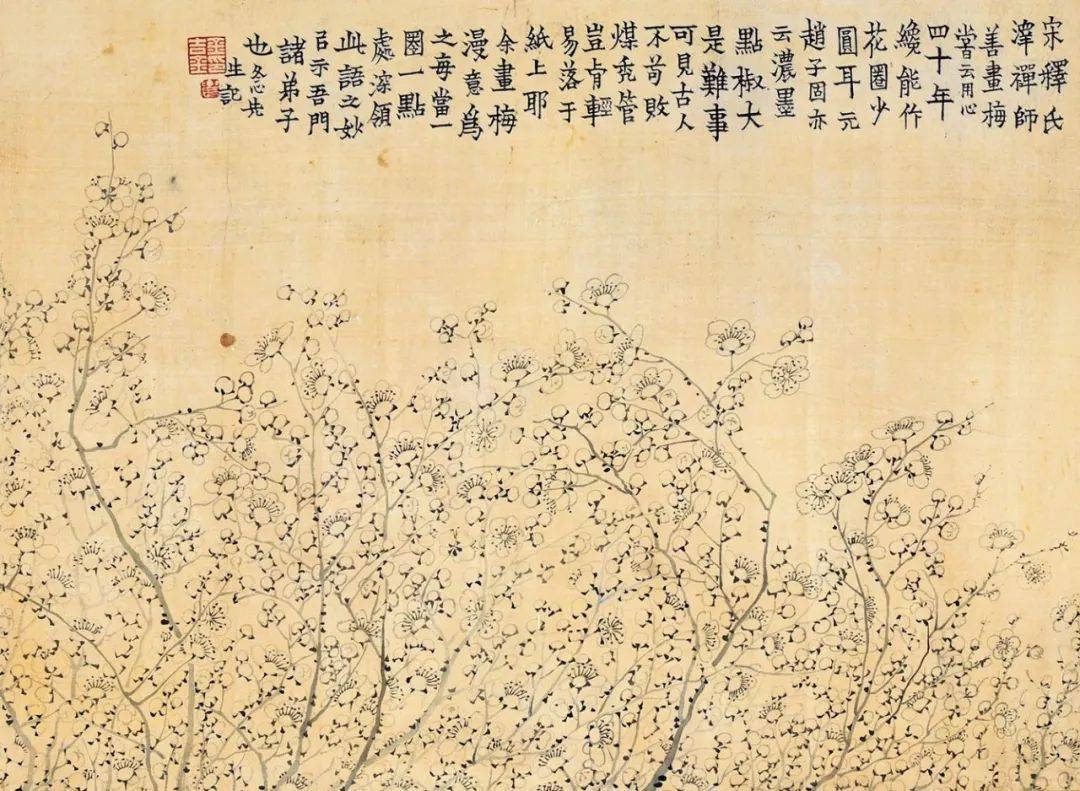 宋釋氏
澤禪師
善畫梅
嘗云用心
四十年
纔能作
花圈少
圓耳元
趙子固亦
云濃墨
點椒大
是難事
可見古人
不苟敗
煤禿管
豈肯輕
易落于
紙上耶
余畫梅
漫意爲
之每當一
圈一點
處深領
此語之妙
㠯示吾門
諸弟子
也冬心先
生記
金吉金印